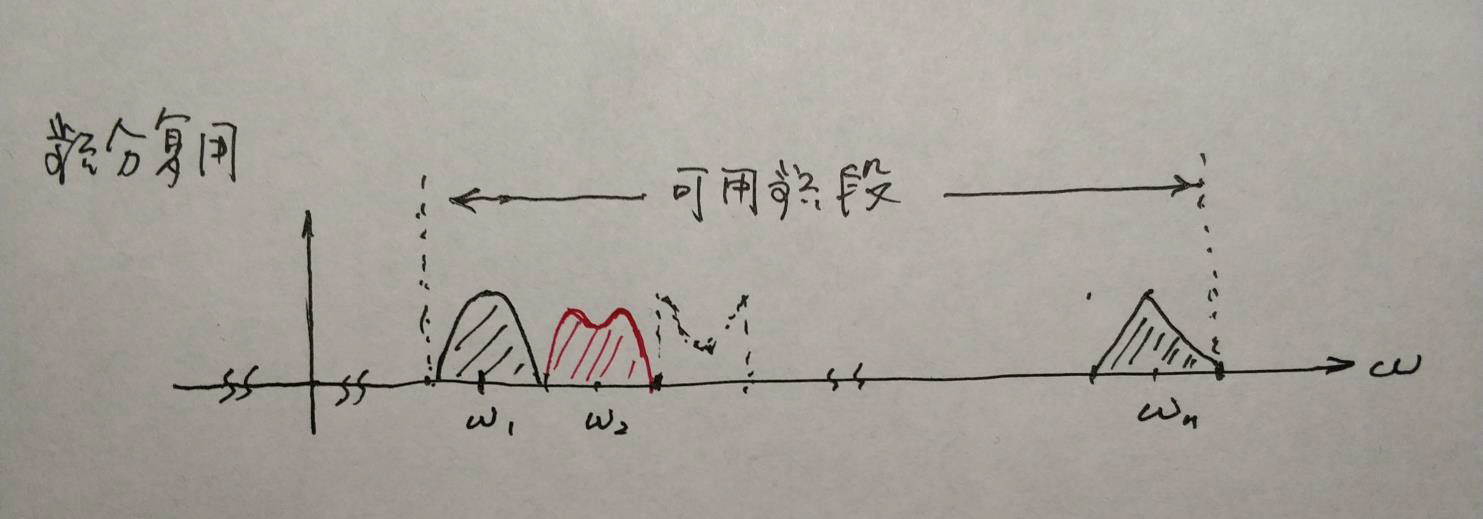 频分复用
可用频段
ω
ω₁ ω₂ ωₙ